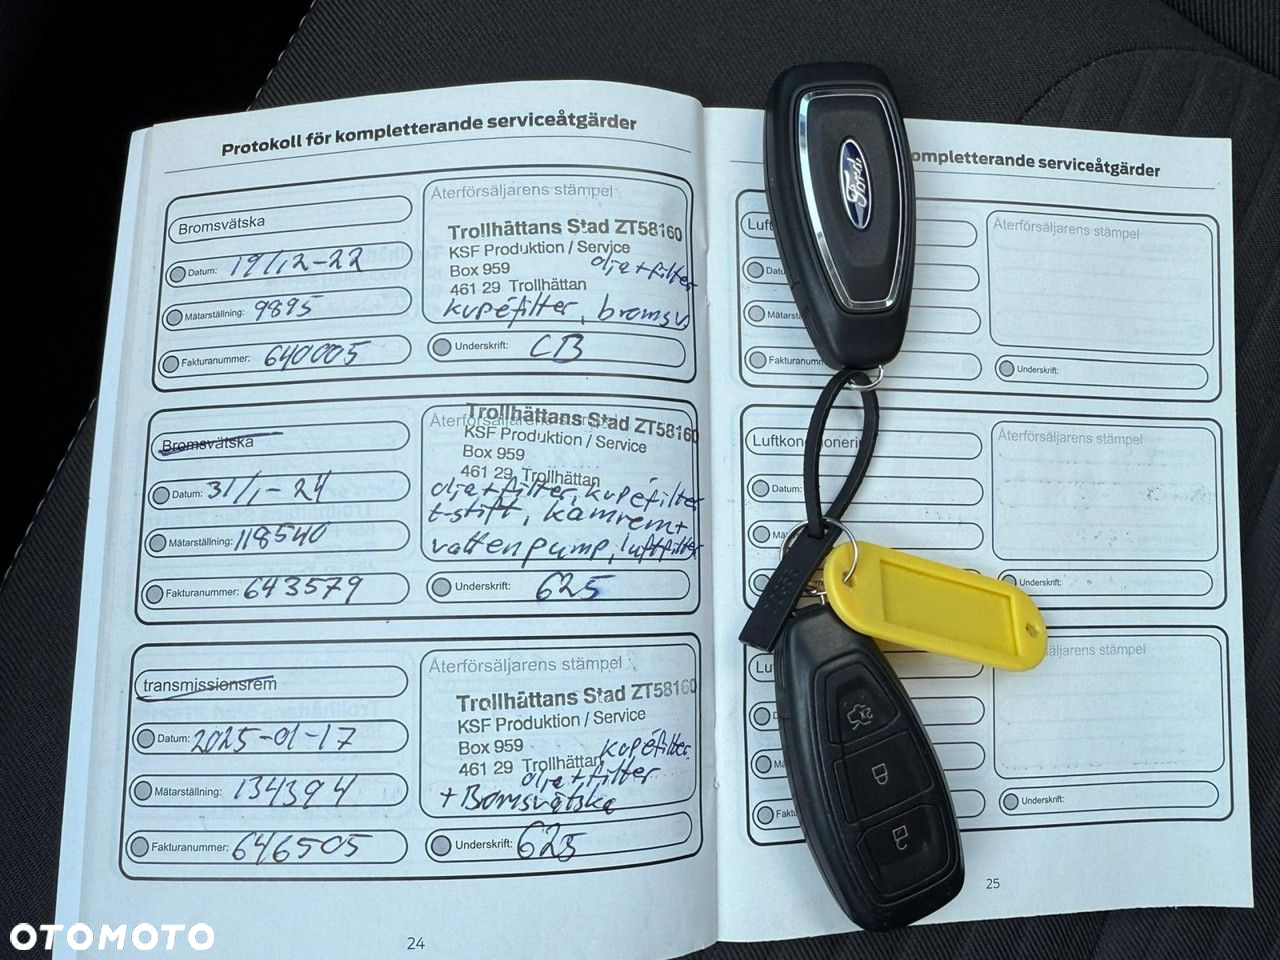 Protokoll för kompletterande serviceåtgärder
Bromsvätska
Datum: 19/12-22
Mätarställning: 9895
Fakturanummer: 640005
Återförsäljarens stämpel
Trollhättans Stad ZT58160
KSF Produktion / Service
Box 959
olja+filter
461 29 Trollhättan
kupéfilter, bromsv
Underskrift: CB
Bromsvätska
Datum: 31/1-24
Mätarställning: 118540
Fakturanummer: 643579
Återförsäljarens stämpel
Trollhättans Stad ZT58160
KSF Produktion / Service
Box 959
461 29 Trollhättan
olja+filter, kupéfilter
t-stift, kamrem+
vattenpump, luftfilter
Underskrift: 625
transmissionsrem
Datum: 2025-01-17
Mätarställning: 134394
Fakturanummer: 646505
Återförsäljarens stämpel
Trollhättans Stad ZT58160
KSF Produktion / Service
Box 959
kupéfilter
461 29 Trollhättan
olja+filter
+Bomsvätska
Underskrift: 625
24
ompletterande serviceåtgärder
Luf
Datu
Mätarst
Fakturanumm
Återförsäljarens stämpel
Underskrift:
Datum:
Mä
Återförsäljarens stämpel
Underskrift:
Lu
D
Mä
Faktu
säljarens stämpel
Underskrift:
25
Ford
2x
OTOMOTO